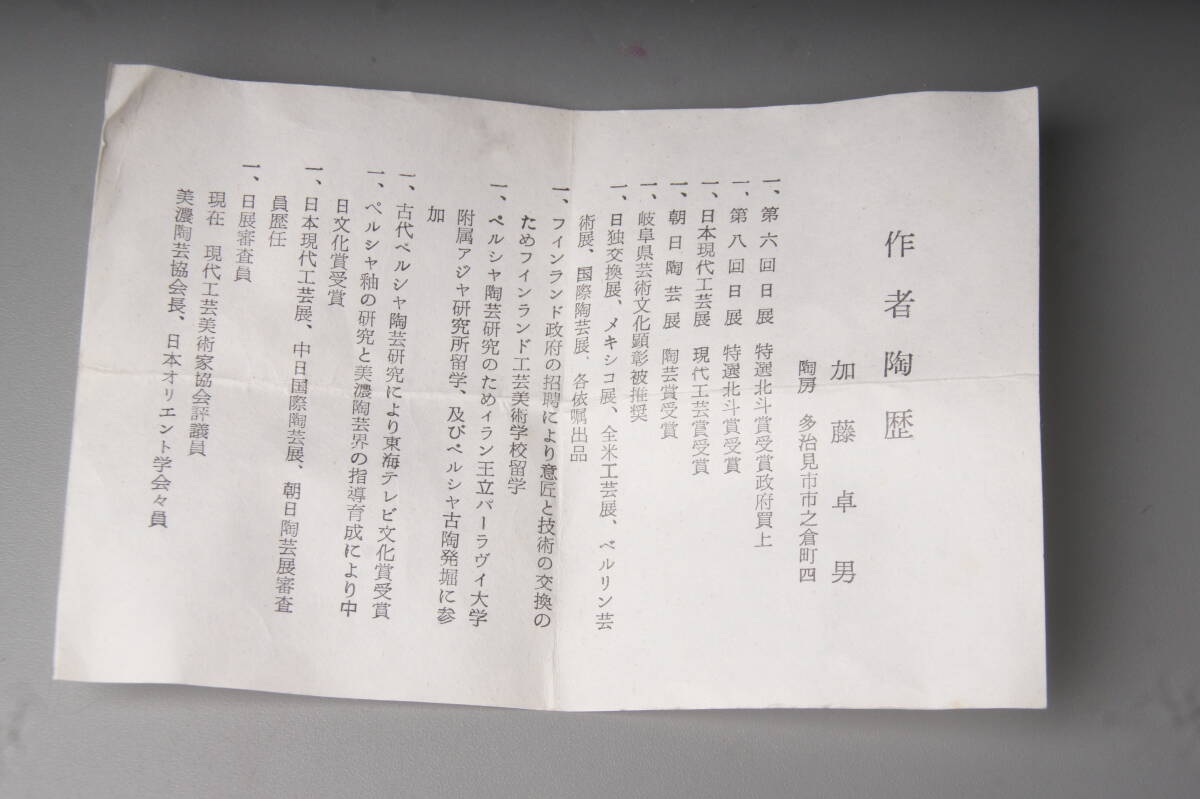 作者陶歴
加藤卓男
陶房 多治見市市之倉町四
一、第六回日展 特選北斗賞受賞政府買上
一、第八回日展 特選北斗賞受賞
一、日本現代工芸展 現代工芸賞受賞
一、朝日陶芸展 陶芸賞受賞
一、岐阜県芸術文化顕彰被推奨
一、日独交換展、メキシコ展、全米工芸展、ベルリン芸
術展、国際陶芸展、各依嘱出品
一、フィンランド政府の招聘により意匠と技術の交換の
ためフインランド工芸美術学校留学
一、ペルシャ陶芸研究のためィラン王立パーラヴィ大学
附属アジャ研究所留学、及びペルシャ古陶発堀に参
加
一、古代ペルシャ陶芸研究により東海テレビ文化賞受賞
一、ペルシャ釉の研究と美濃陶芸界の指導育成により中
日文化賞受賞
一、日本現代工芸展、中日国際陶芸展、朝日陶芸展審査
員歴任
一、日展審査員
現在 現代工芸美術家協会評議員
美濃陶芸協会長、日本オリエント学会々員